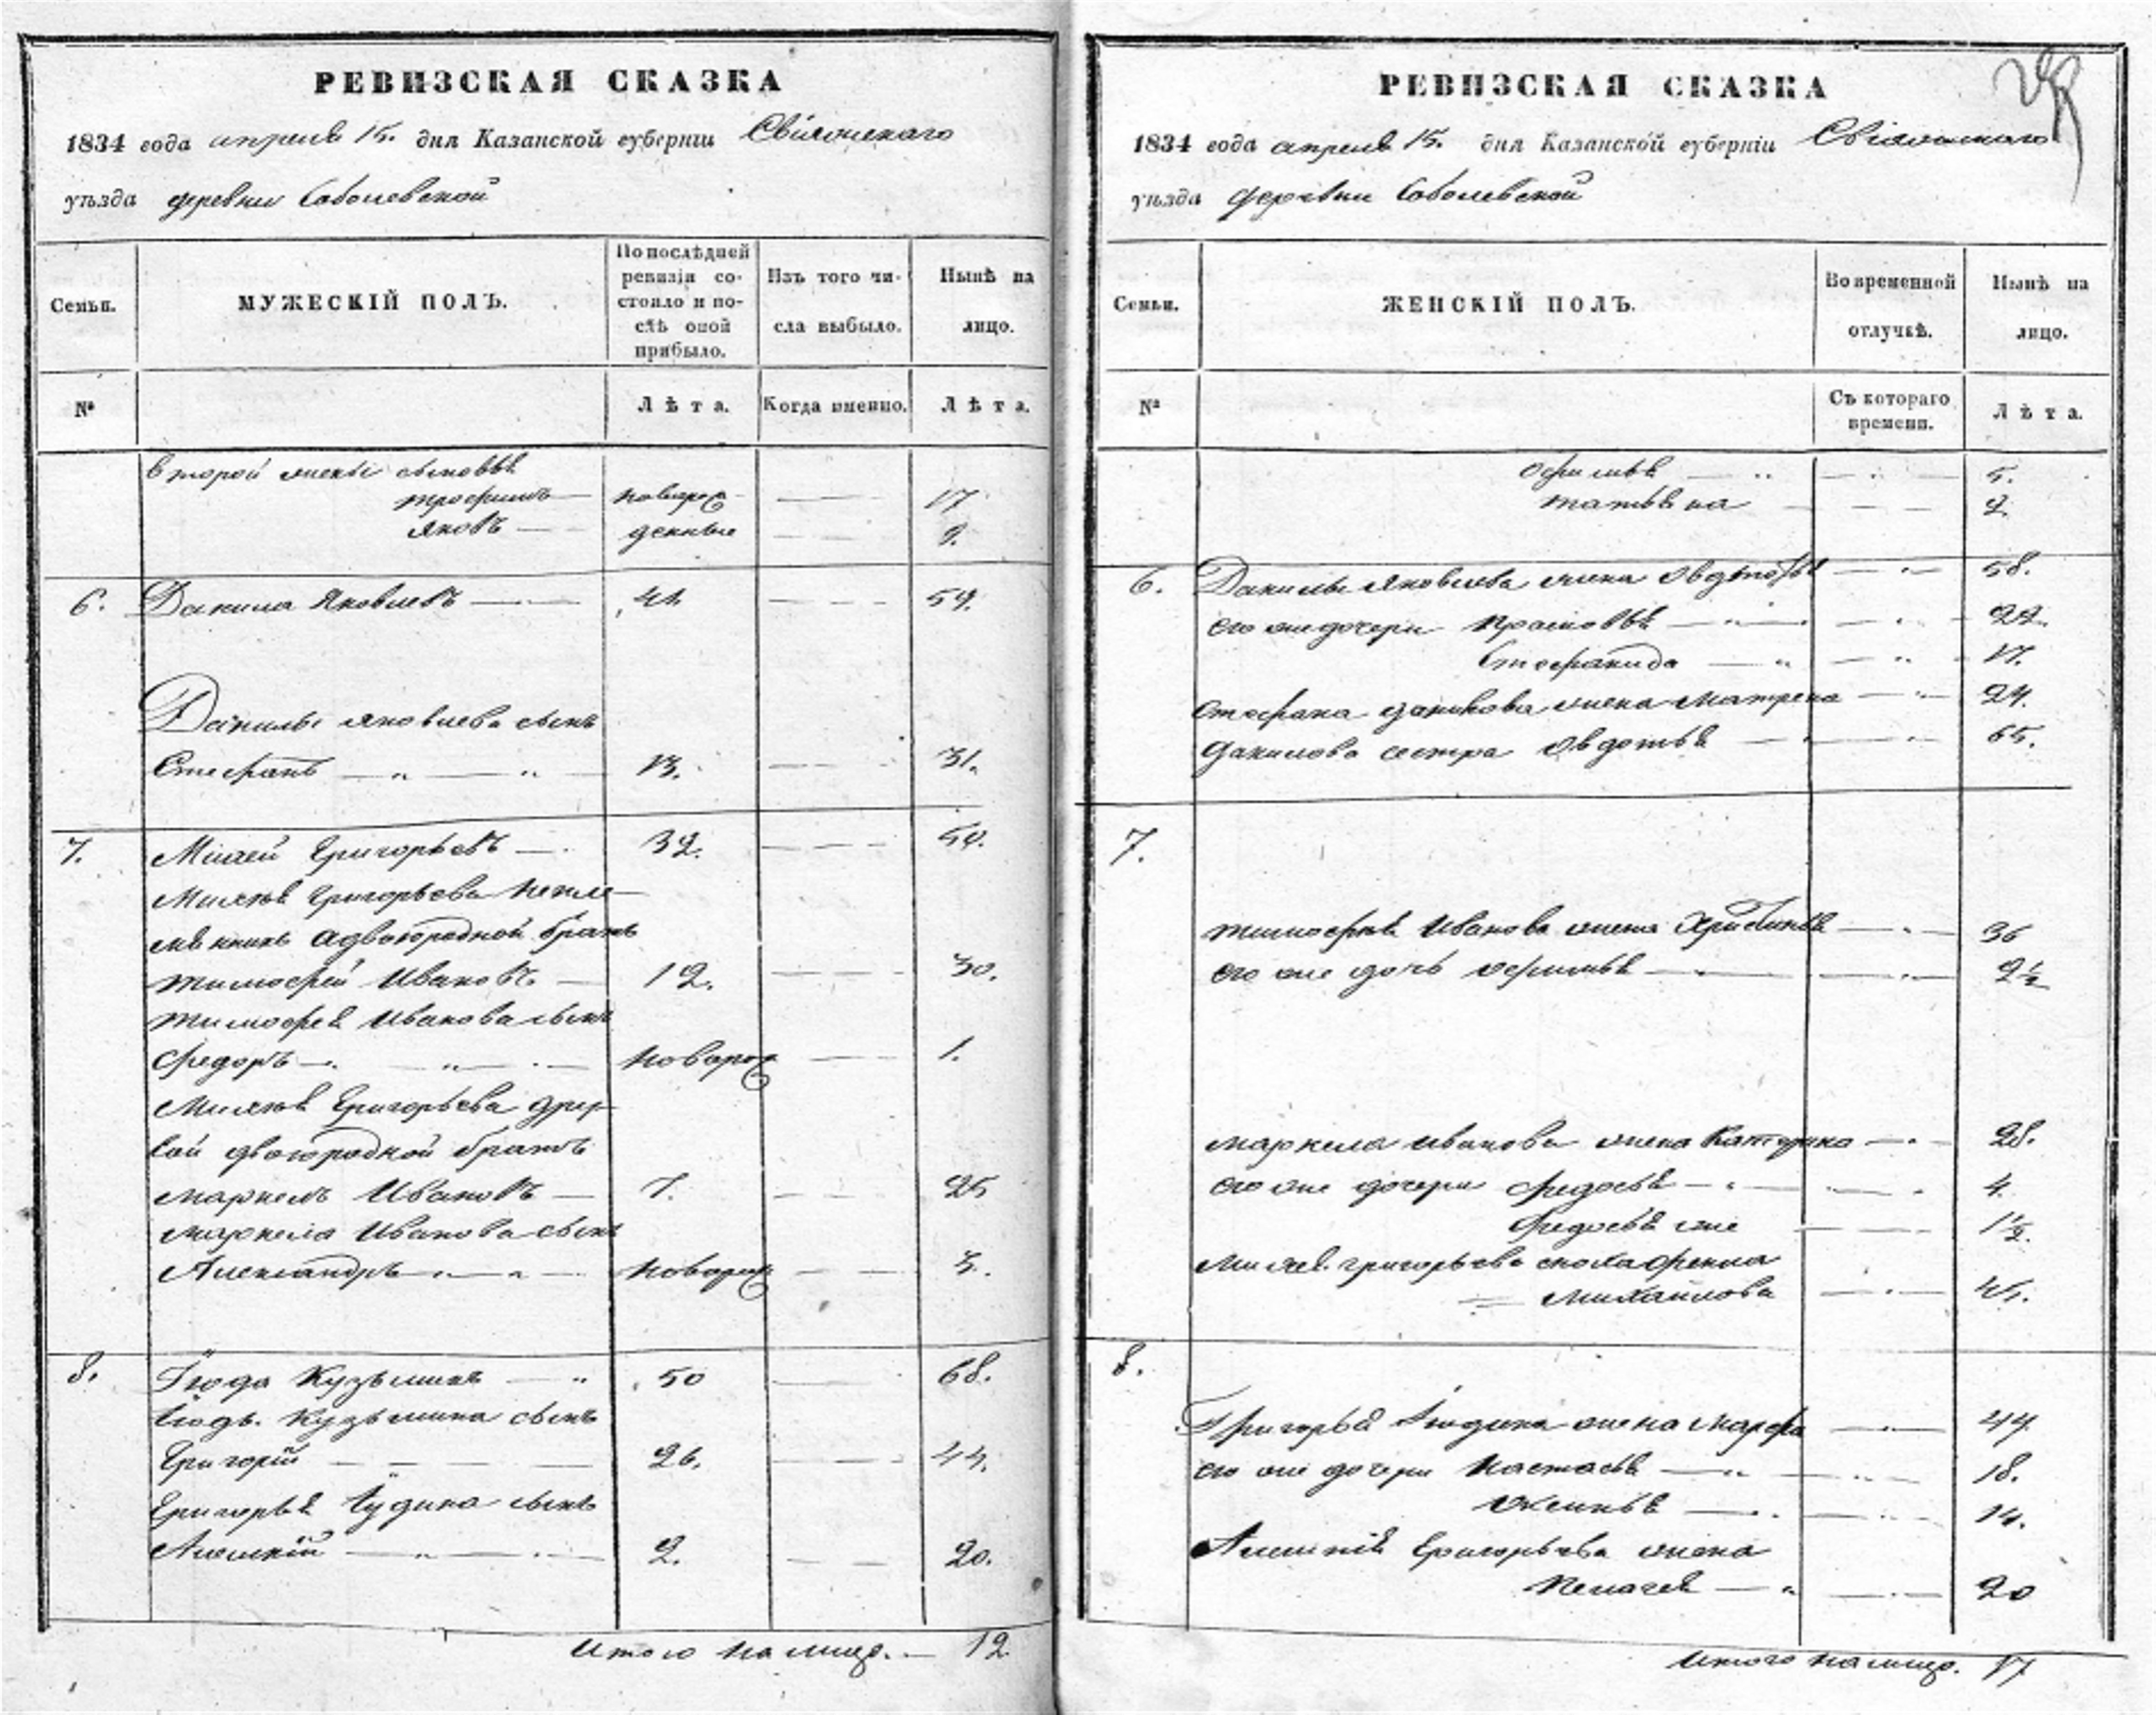 РЕВИЗСКАЯ СКАЗКА
1834 года апреля 15. дня Казанской губернiи Свiяжскаго
уѣзда деревни Соболевской
Семьи.
МУЖЕСКІЙ ПОЛЪ.
По послѣдней
ревизіи со-
стояло и по-
слѣ оной
прибыло.
Изъ того чи-
сла выбыло.
Нынѣ на
лицо.
№
Лѣта.
Когда именно.
Лѣта.
второй жены сыновья
трофимъ новорож 17
яковъ денные 9.
6. Данила Яковлевъ 41 59.
Данилы яковлева сынъ
Стефанъ 13. 31.
7. Михей Григорьевъ 32. 50.
Михея Григорьева племе
Тимофей Ивановъ 12. 30.
тимофея Иванова сынъ
Федоръ новорож 1.
Михея Григорьева дру
гой двоюродной братъ
маркелъ Ивановъ 7. 25
маркела Иванова сынъ
Александръ новорож 3.
8. Іюда Кузьминъ 50 68.
Іюды Кузьмина сынъ
Григорій 26. 44.
Григорья Іудина сынъ
Алексѣй 2. 20.
Итого на лицо. 12
РЕВИЗСКАЯ СКАЗКА
1834 года апреля 15. дня Казанской губернiи Свiяжскаго
уѣзда деревни Соболевской
Семьи.
ЖЕНСКІЙ ПОЛЪ.
Во временной
отлучкѣ.
Нынѣ на
лицо.
№
Съ котораго
времени.
Лѣта.
Офимья 5.
татьяна 2.
6. Данилы Яковлева жена Овдотья 58.
его же дочери Прасковья 22.
Стефанида 17.
Стефана данилова жена матрена 24.
данилова сестра Овдотья 65.
7.
тимофея Иванова жена 36
его же дочь офимья 2½
маркела иванова жена Катерина 28.
его же дочери федосья 4.
федосья же 1½.
Михея григорьева сноха
михайлова 45.
8.
Григорья Іюдина жена марфа 44.
его же дочери Настасья 18.
Оксинья 14.
Алексѣя Григорьева жена
Пелагея 20
Итого на лицо. 17